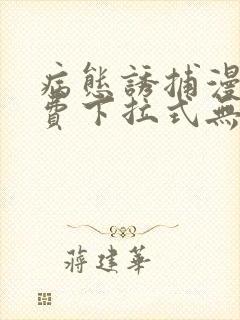 病態誘捕漫
費下拉式無
蔣建華